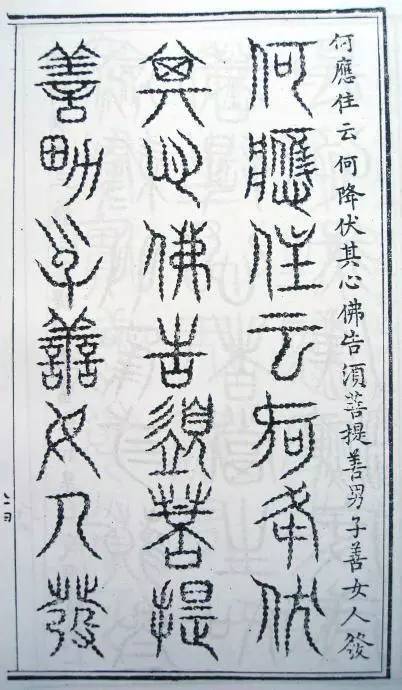 何應住云何降伏其心佛告湏菩提善男子善女人發
何應住云何降伏
其心佛告須菩提
善男子善女人發